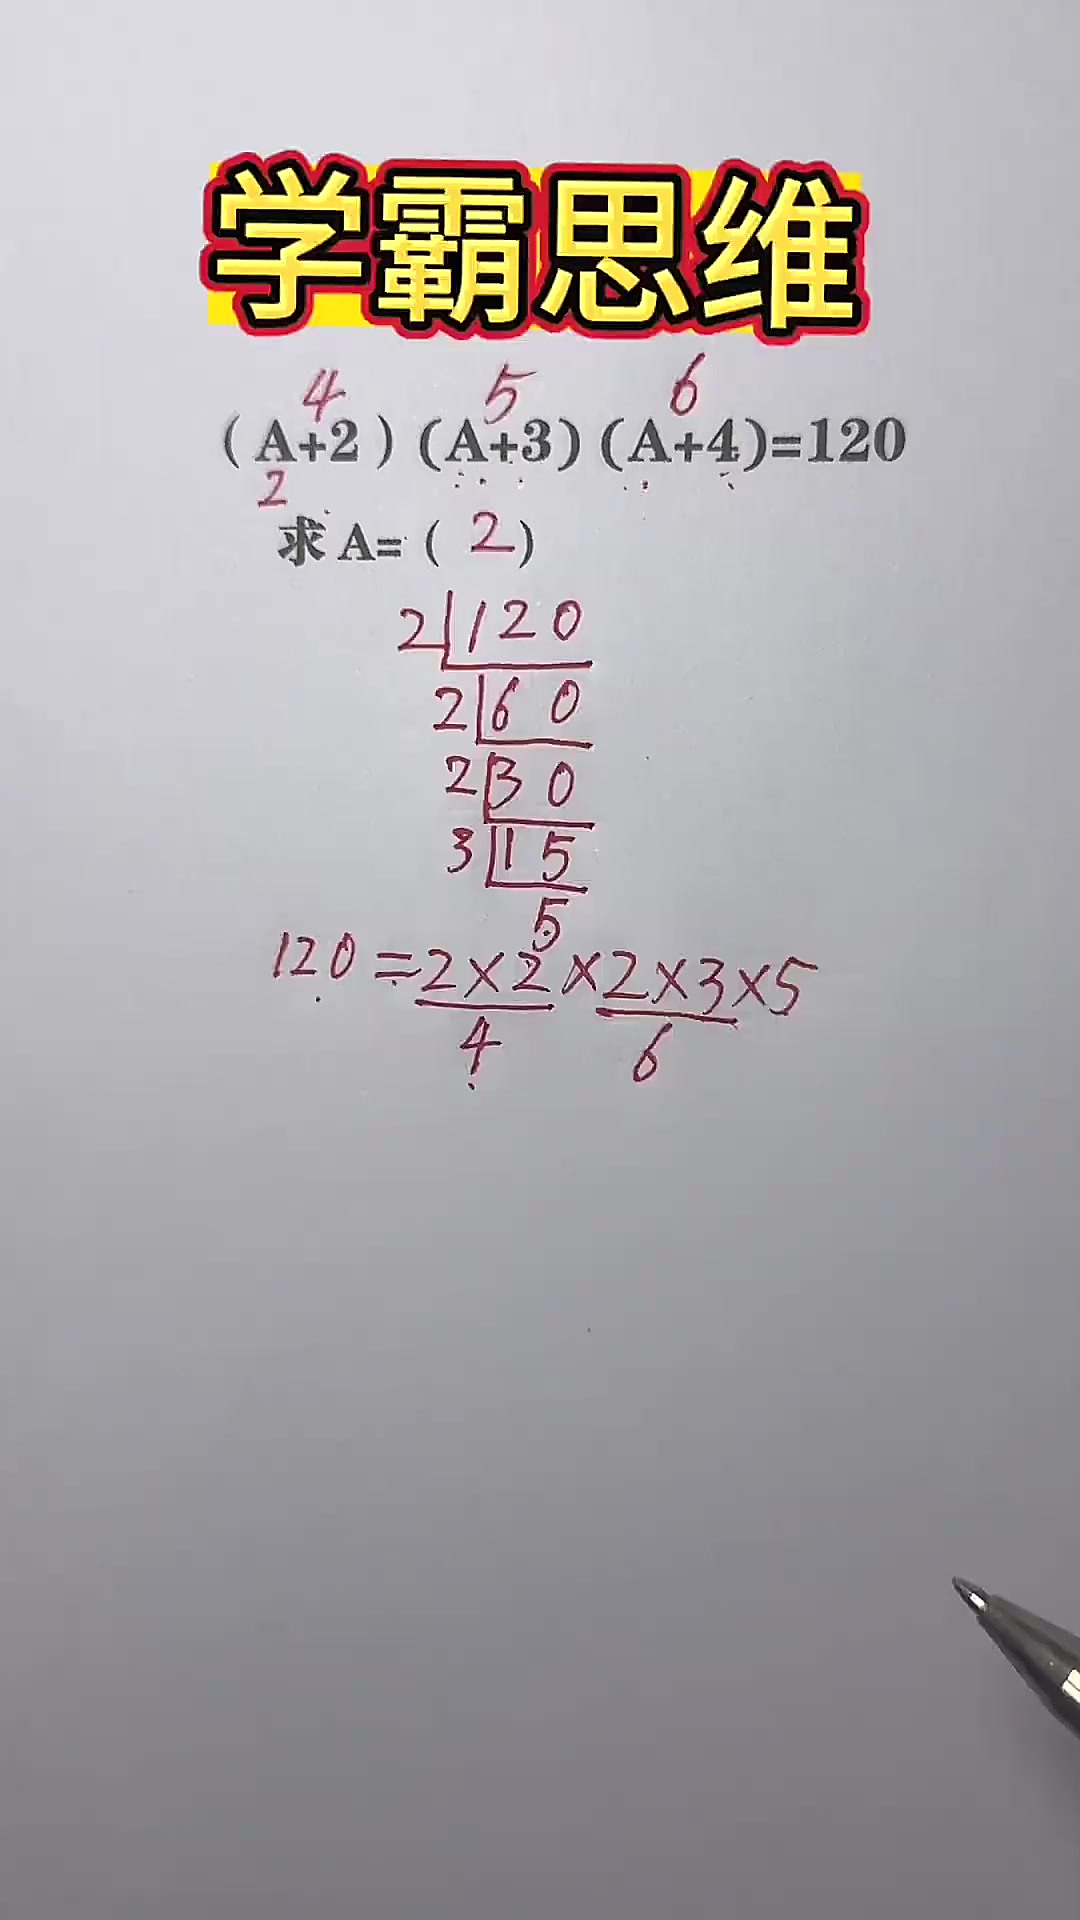 学霸思维
4 5 6
(A+2)(A+3)(A+4)=120
2
求 A=( 2 )
2 120
2 60
2 30
3 15
5
120=2×2×2×3×5
4 6